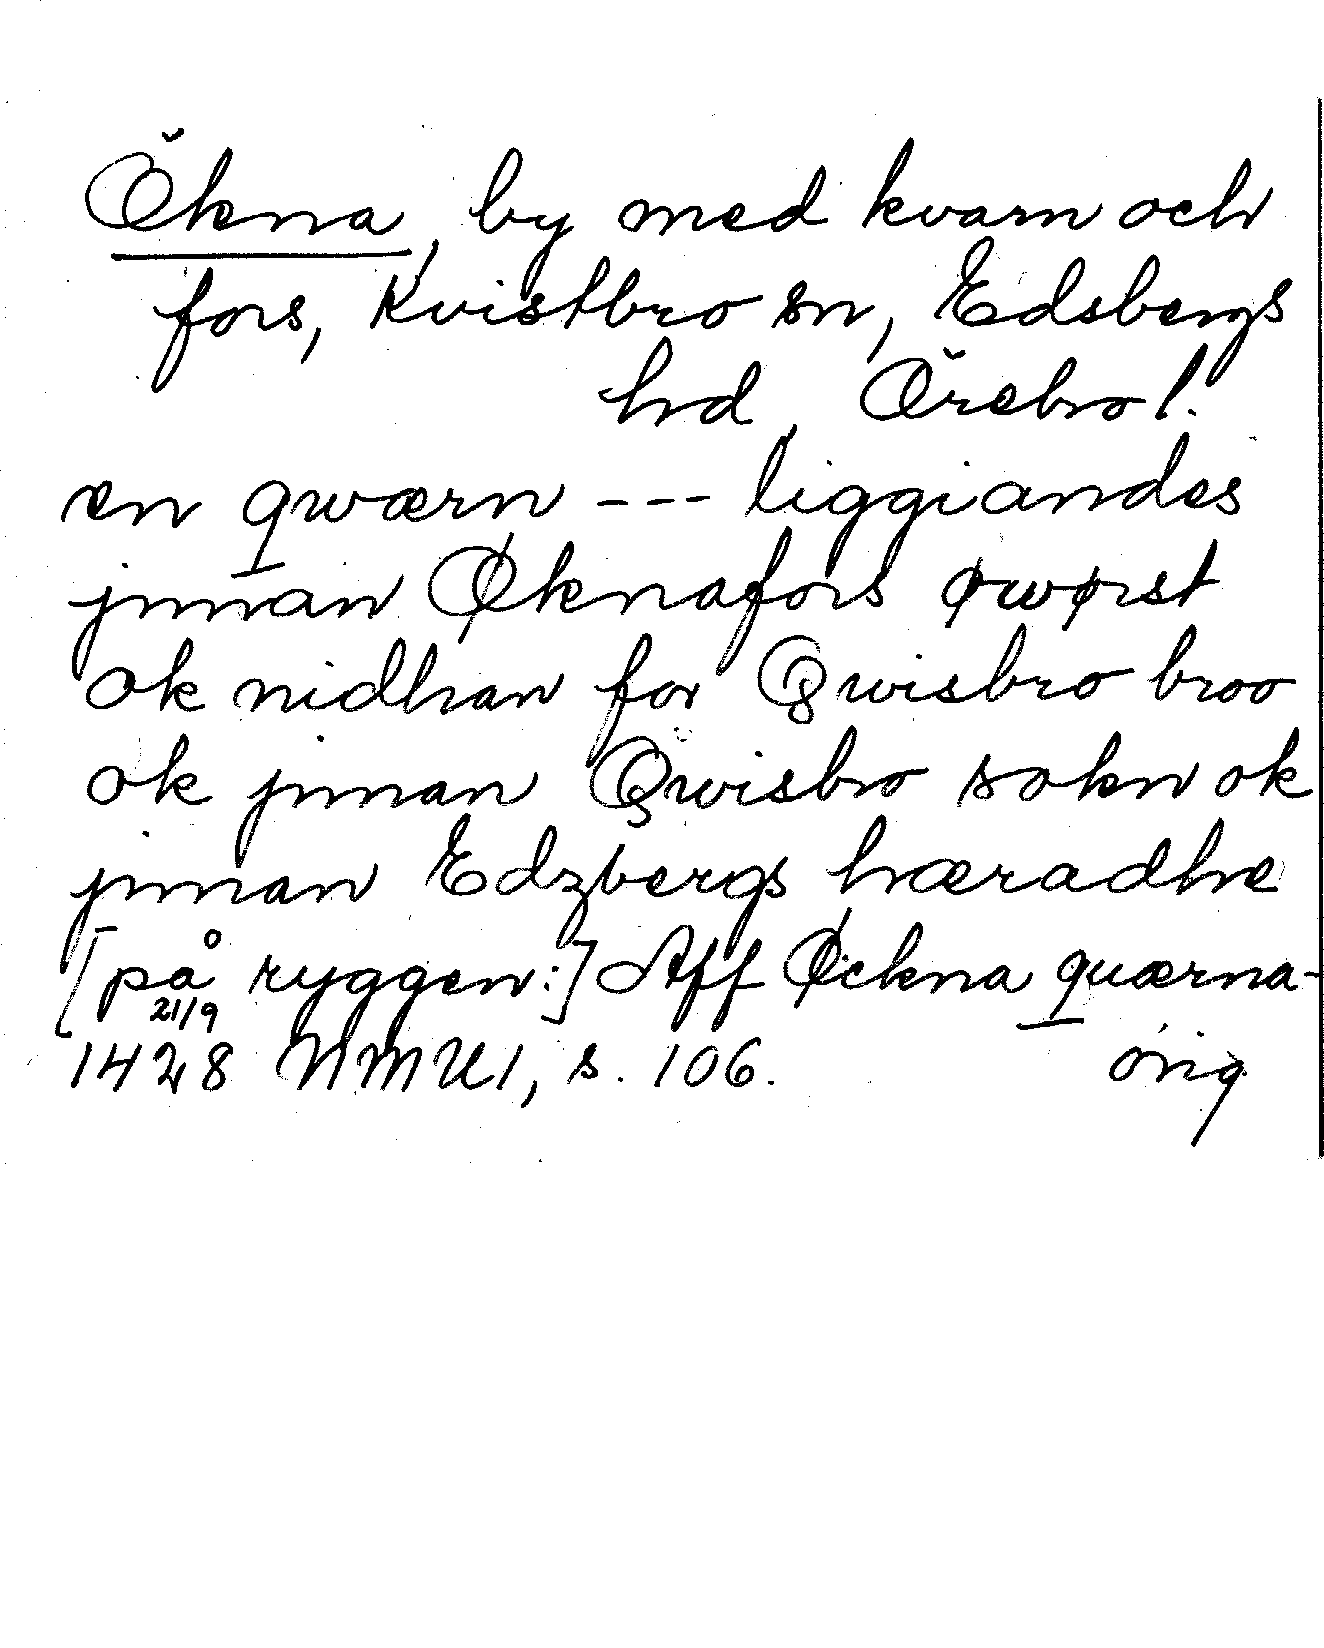 Ökna, by med kvarn och
fors, Kvistbro sn, Edsbergs
hd, Örebro l.
en qwærn --- liggiandes
jnnan Øknafors øwørst
ok nidhan for Qwisbro broo
ok jnnan Qwisbro sokn ok
jnnan Edzbergs hæradhe
[på ryggen:] Aff Øckna quærna-
21/9
1428 NMU1, s. 106. orig